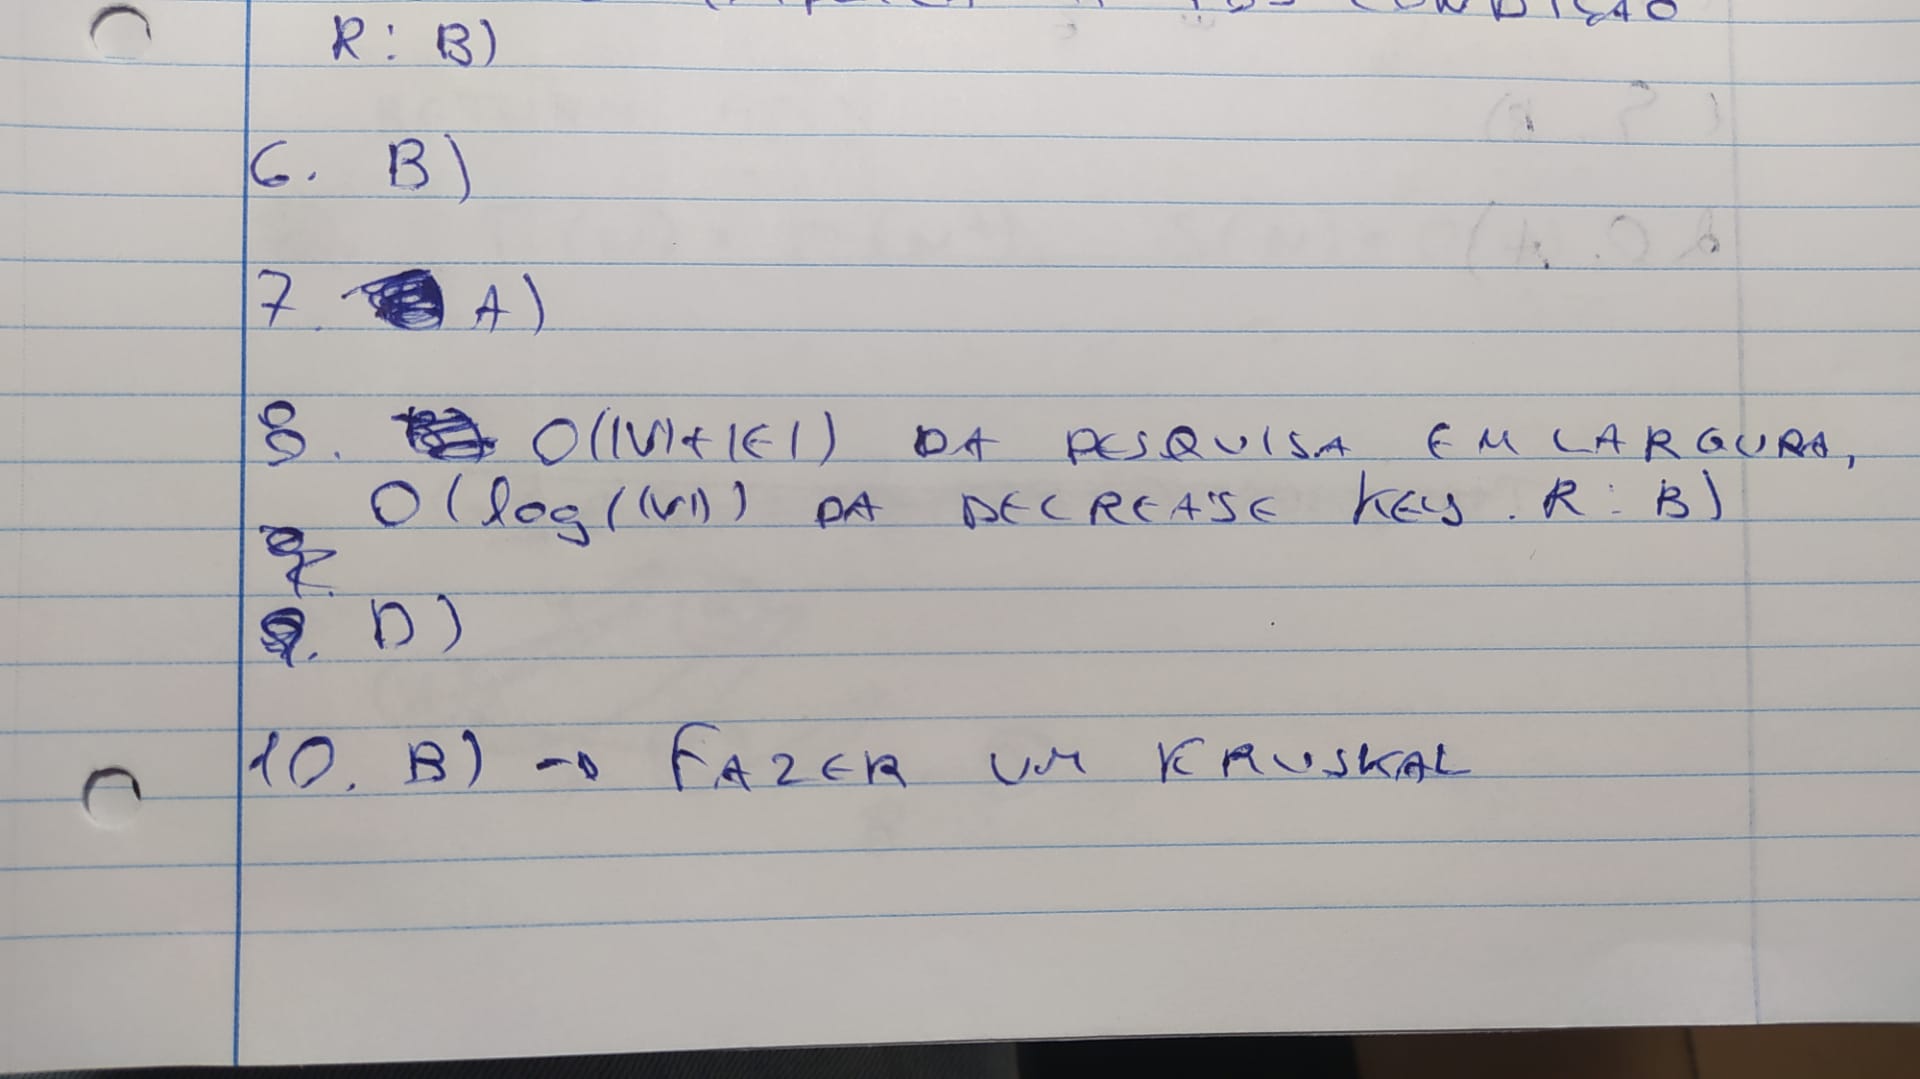 CONDIÇÃO
R: B)
6. B)
7. A)
8. O(|V|+|E|) DA PESQUISA EM LARGURA,
O(log(|V|)) DA DECREASE KEY. R: B)
9. D)
10. B) → FAZER UM KRUSKAL